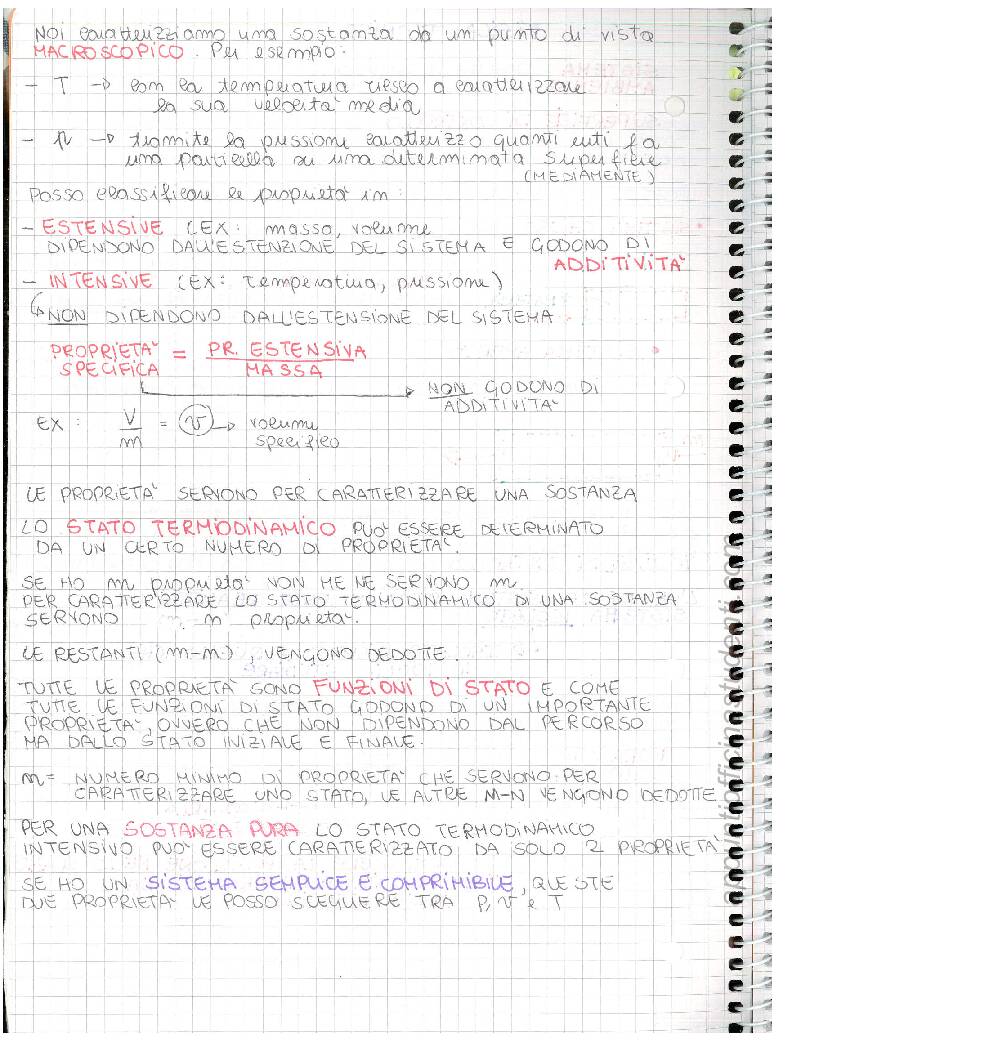 NOI caratterizziamo una sostanza da un punto di vista
MACROSCOPICO. Per esempio:
- T → con la temperatura riesco a caratterizzare
la sua velocità media
- p → tramite la pressione caratterizzo quanti urti fa
una particella su una determinata superficie
(MEDIAMENTE)
Posso classificare le proprietà in:
- ESTENSIVE (EX: massa, volume
DIPENDONO DALL'ESTENZIONE DEL SISTEMA E GODONO DI
ADDITIVITA'
- INTENSIVE (EX: temperatura, pressione)
NON DIPENDONO DALL'ESTENSIONE DEL SISTEMA
PROPRIETA' SPECIFICA = PR. ESTENSIVA / MASSA
NON GODONO DI
ADDITIVITA'
EX: V/m = v → volume
specifico
LE PROPRIETA' SERVONO PER CARATTERIZZARE UNA SOSTANZA
LO STATO TERMODINAMICO PUO' ESSERE DETERMINATO
DA UN CERTO NUMERO DI PROPRIETA'.
SE HO m proprietà NON ME NE SERVONO m.
PER CARATTERIZZARE LO STATO TERMODINAMICO DI UNA SOSTANZA
SERVONO n proprietà.
LE RESTANTI (m-n), VENGONO DEDOTTE.
TUTTE LE PROPRIETA' SONO FUNZIONI DI STATO E COME
TUTTE LE FUNZIONI DI STATO GODONO DI UN IMPORTANTE
PROPRIETA', OVVERO CHE NON DIPENDONO DAL PERCORSO
MA DALLO STATO INIZIALE E FINALE.
n = NUMERO MINIMO DI PROPRIETA' CHE SERVONO PER
CARATTERIZZARE UNO STATO, LE ALTRE M-N VENGONO DEDOTTE
PER UNA SOSTANZA PURA LO STATO TERMODINAMICO
INTENSIVO PUO' ESSERE CARATTERIZZATO DA SOLO 2 PROPRIETA'
SE HO UN SISTEMA SEMPLICE E COMPRIMIBILE, QUESTE
DUE PROPRIETA' LE POSSO SCEGLIERE TRA P, v e T
appuntiofficinastudenti.com